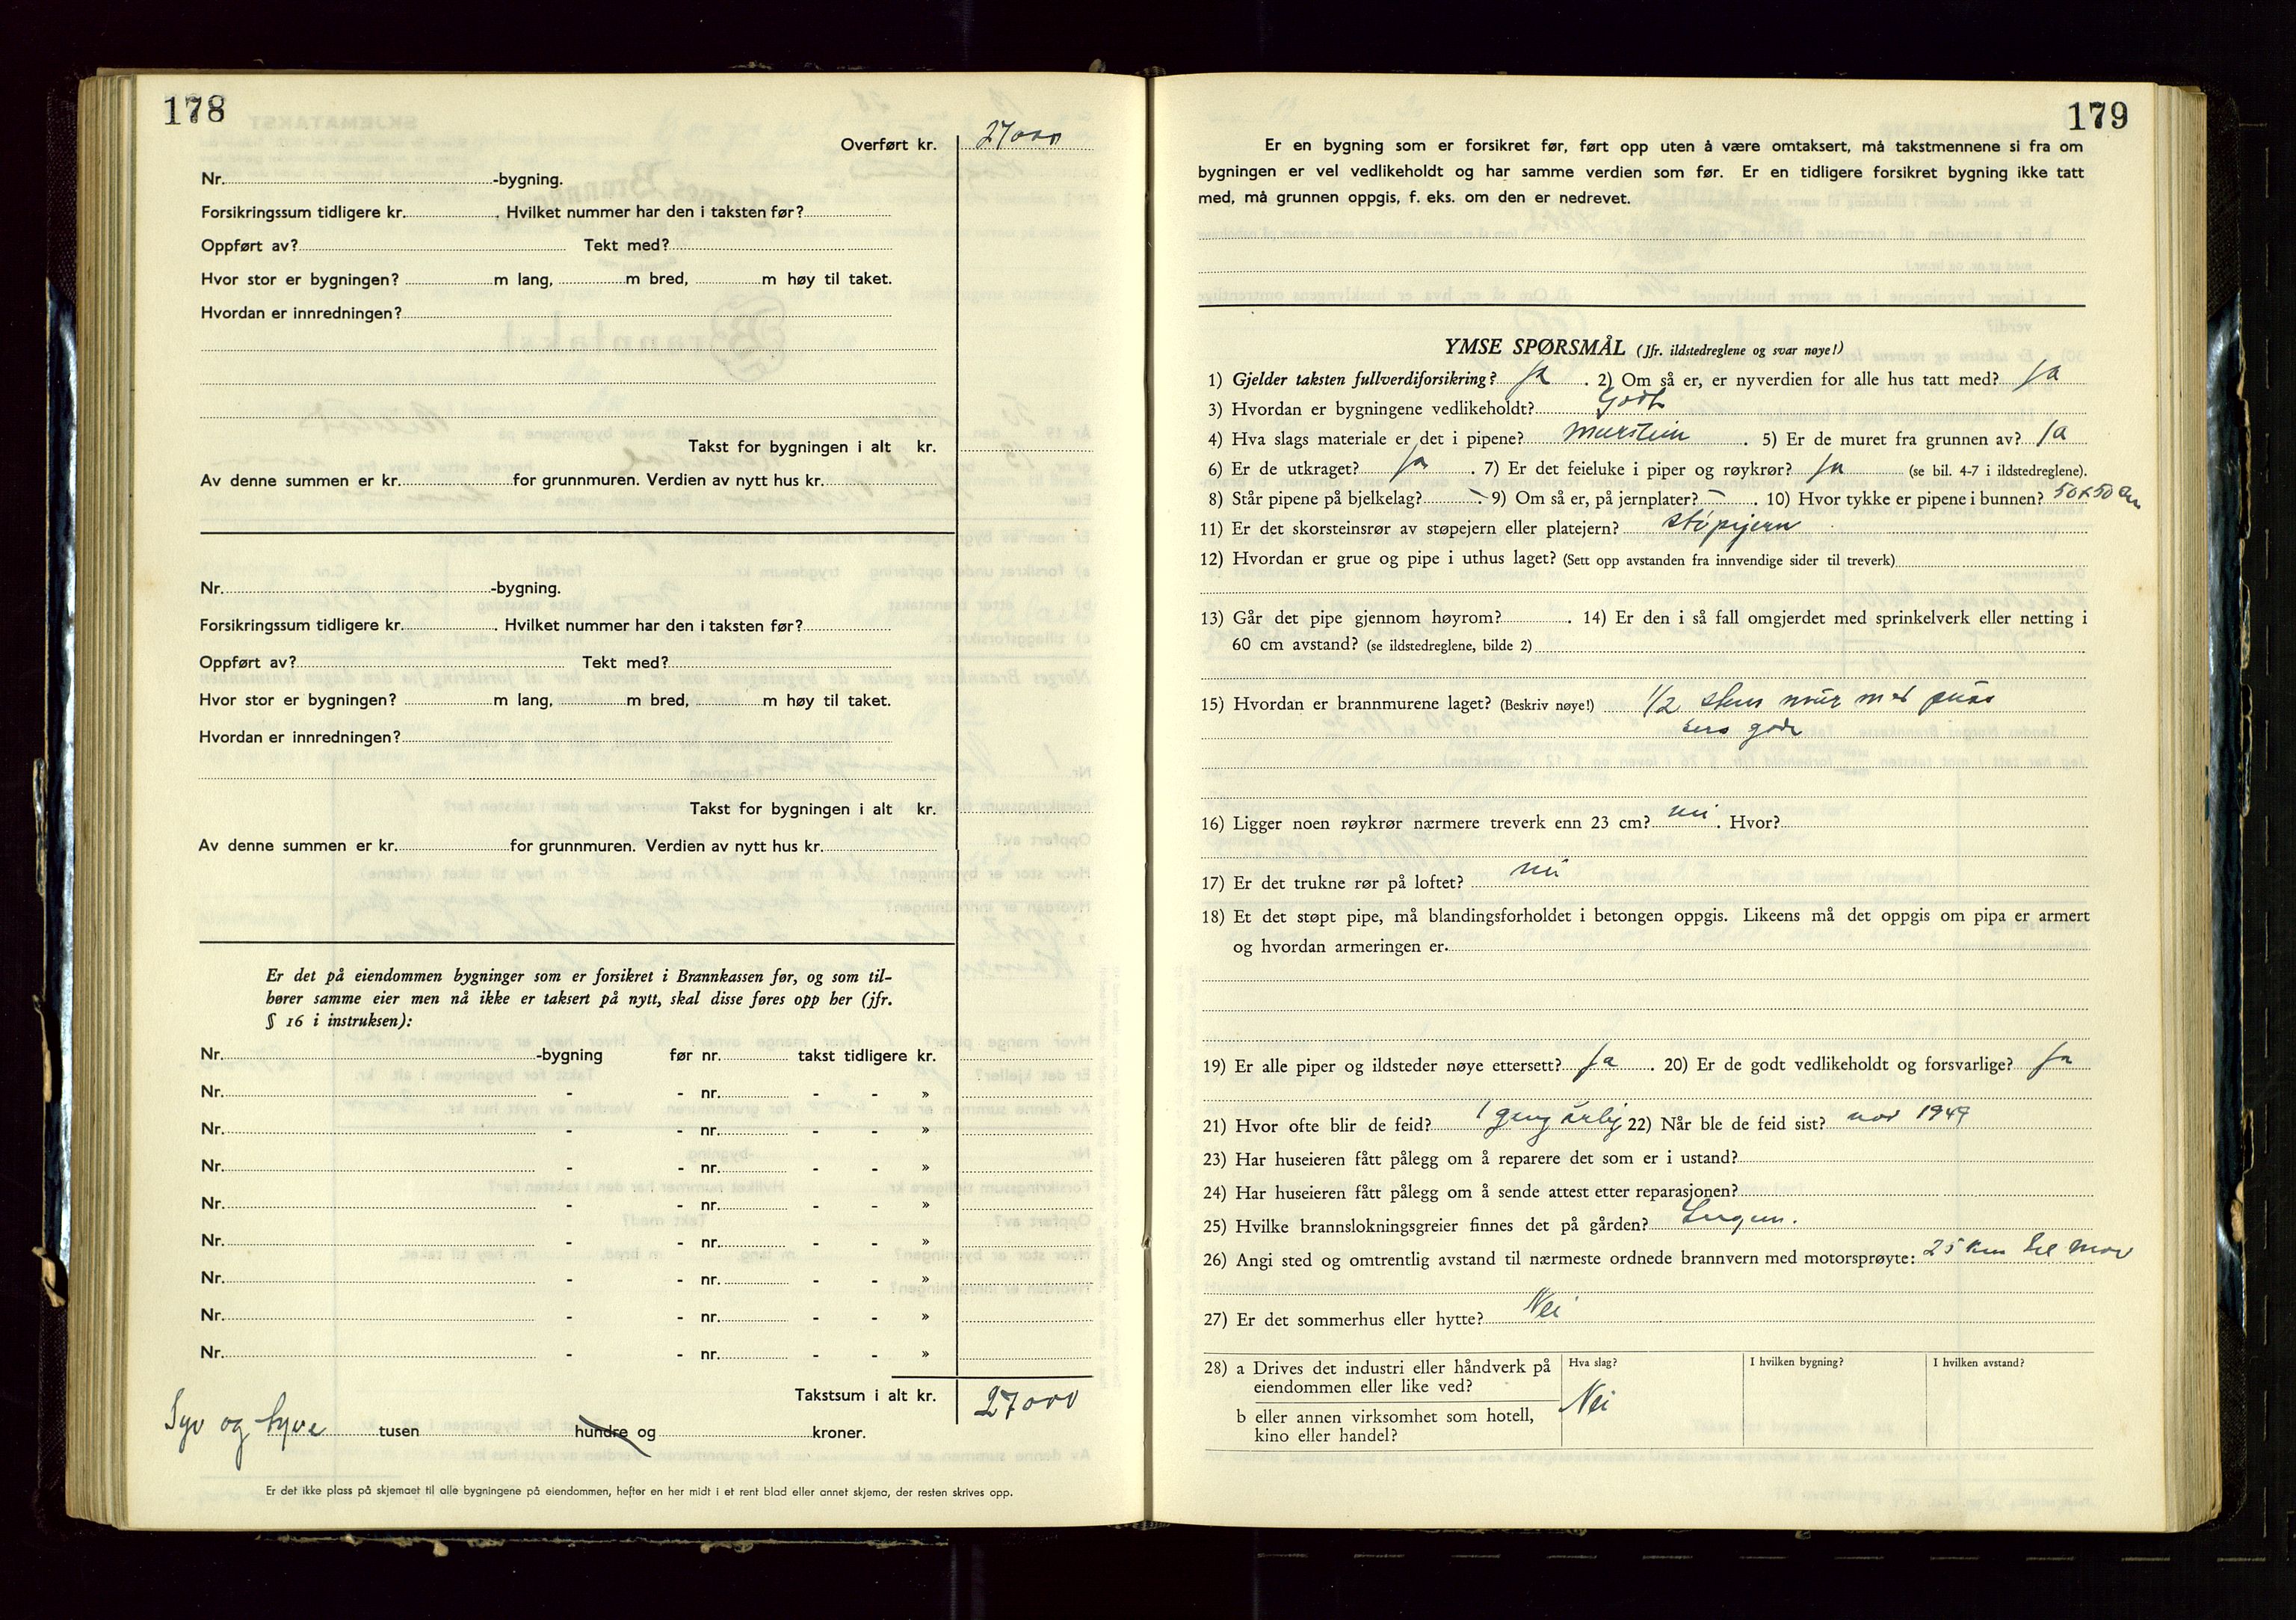 178
Overført kr. 27000
Nr. -bygning.
Forsikringssum tidligere kr. . Hvilket nummer har den i taksten før?
Oppført av? Tekt med?
Hvor stor er bygningen? m lang, m bred, m høy til taket.
Hvordan er innredningen?
Takst for bygningen i alt kr.
Av denne summen er kr. for grunnmuren. Verdien av nytt hus kr.
Nr. -bygning.
Forsikringssum tidligere kr. . Hvilket nummer har den i taksten før?
Oppført av? Tekt med?
Hvor stor er bygningen? m lang, m bred, m høy til taket.
Hvordan er innredningen?
Takst for bygningen i alt kr.
Av denne summen er kr. for grunnmuren. Verdien av nytt hus kr.
Er det på eiendommen bygninger som er forsikret i Brannkassen før, og som til-
hører samme eier men nå ikke er taksert på nytt, skal disse føres opp her (jfr.
§ 16 i instruksen):
Nr. -bygning før nr. takst tidligere kr.
Nr. - - nr. - - »
Nr. - - nr. - - »
Nr. - - nr. - - »
Nr. - - nr. - - »
Nr. - - nr. - - »
Nr. - - nr. - - »
Nr. - - nr. - - »
Nr. - - nr. - - »
Takstsum i alt kr. 27000
Syv og tyve tusen hundre og kroner.
Er det ikke plass på skjemaet til alle bygningene på eiendommen, hefter en her midt i et rent blad eller annet skjema, der resten skrives opp.
179
Er en bygning som er forsikret før, ført opp uten å være omtaksert, må takstmennene si fra om
bygningen er vel vedlikeholdt og har samme verdien som før. Er en tidligere forsikret bygning ikke tatt
med, må grunnen oppgis, f. eks. om den er nedrevet.
YMSE SPØRSMÅL (Jfr. ildstedreglene og svar nøye!)
1) Gjelder taksten fullverdiforsikring? ja . 2) Om så er, er nyverdien for alle hus tatt med? ja
3) Hvordan er bygningene vedlikeholdt? Godt
4) Hva slags materiale er det i pipene? murstein . 5) Er de muret fra grunnen av? ja
6) Er de utkraget? ja . 7) Er det feieluke i piper og røykrør? ja (se bil. 4-7 i ildstedreglene).
8) Står pipene på bjelkelag? - 9) Om så er, på jernplater? - . 10) Hvor tykke er pipene i bunnen? 50x50 cm
11) Er det skorsteinsrør av støpejern eller platejern? støpejern
12) Hvordan er grue og pipe i uthus laget? (Sett opp avstanden fra innvendige sider til treverk)
13) Går det pipe gjennom høyrom? . 14) Er den i så fall omgjerdet med sprinkelverk eller netting i
60 cm avstand? (se ildstedreglene, bilde 2)
15) Hvordan er brannmurene laget? (Beskriv nøye!) 1/2 stens mur med puss
gode
16) Ligger noen røykrør nærmere treverk enn 23 cm? nei . Hvor?
17) Er det trukne rør på loftet? nei
18) Et det støpt pipe, må blandingsforholdet i betongen oppgis. Likeens må det oppgis om pipa er armert
og hvordan armeringen er.
19) Er alle piper og ildsteder nøye ettersett? ja . 20) Er de godt vedlikeholdt og forsvarlige? ja
21) Hvor ofte blir de feid? 1 gang årlig 22) Når ble de feid sist? nov 1949
23) Har huseieren fått pålegg om å reparere det som er i ustand?
24) Har huseieren fått pålegg om å sende attest etter reparasjonen?
25) Hvilke brannslokningsgreier finnes det på gården? Ingen.
26) Angi sted og omtrentlig avstand til nærmeste ordnede brannvern med motorsprøyte: 25 km til
27) Er det sommerhus eller hytte? Nei
28) a Drives det industri eller håndverk på eiendommen eller like ved? Hva slag? I hvilken bygning? I hvilken avstand?
Nei
b eller annen virksomhet som hotell,
kino eller handel?